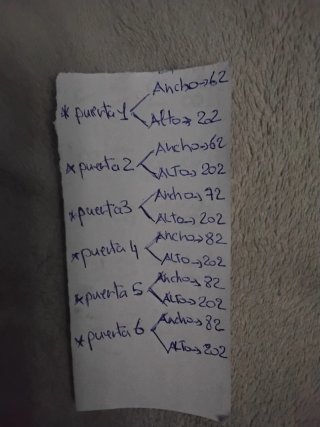 Ancho→62
* puerta 1
Alto→202
Ancho→62
* puerta 2
ALTO→202
Ancho→72
* puerta 3
Alto→202
Ancho→82
* puerta 4
ALTO→202
Ancho→82
* puerta 5
ALTO→202
Ancho→82
* puerta 6
ALTO→202